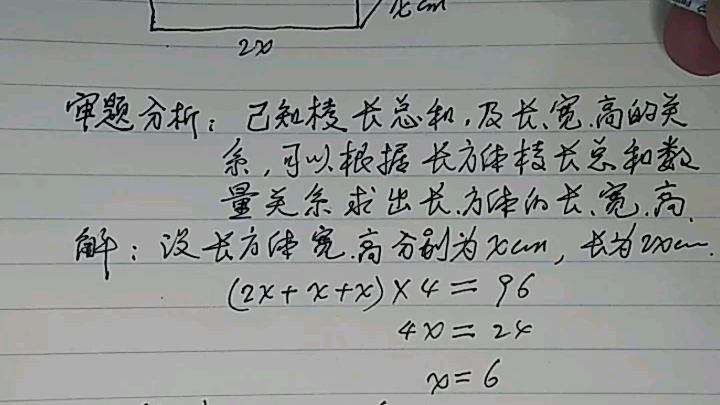 x cm
2x
审题分析：已知棱长总和，及长、宽、高的关
系，可以根据长方体棱长总和数
量关系求出长方体的长、宽、高.
解：设长方体宽.高分别为xcm，长为2xcm.
(2x+x+x)×4=96
4x=24
x=6